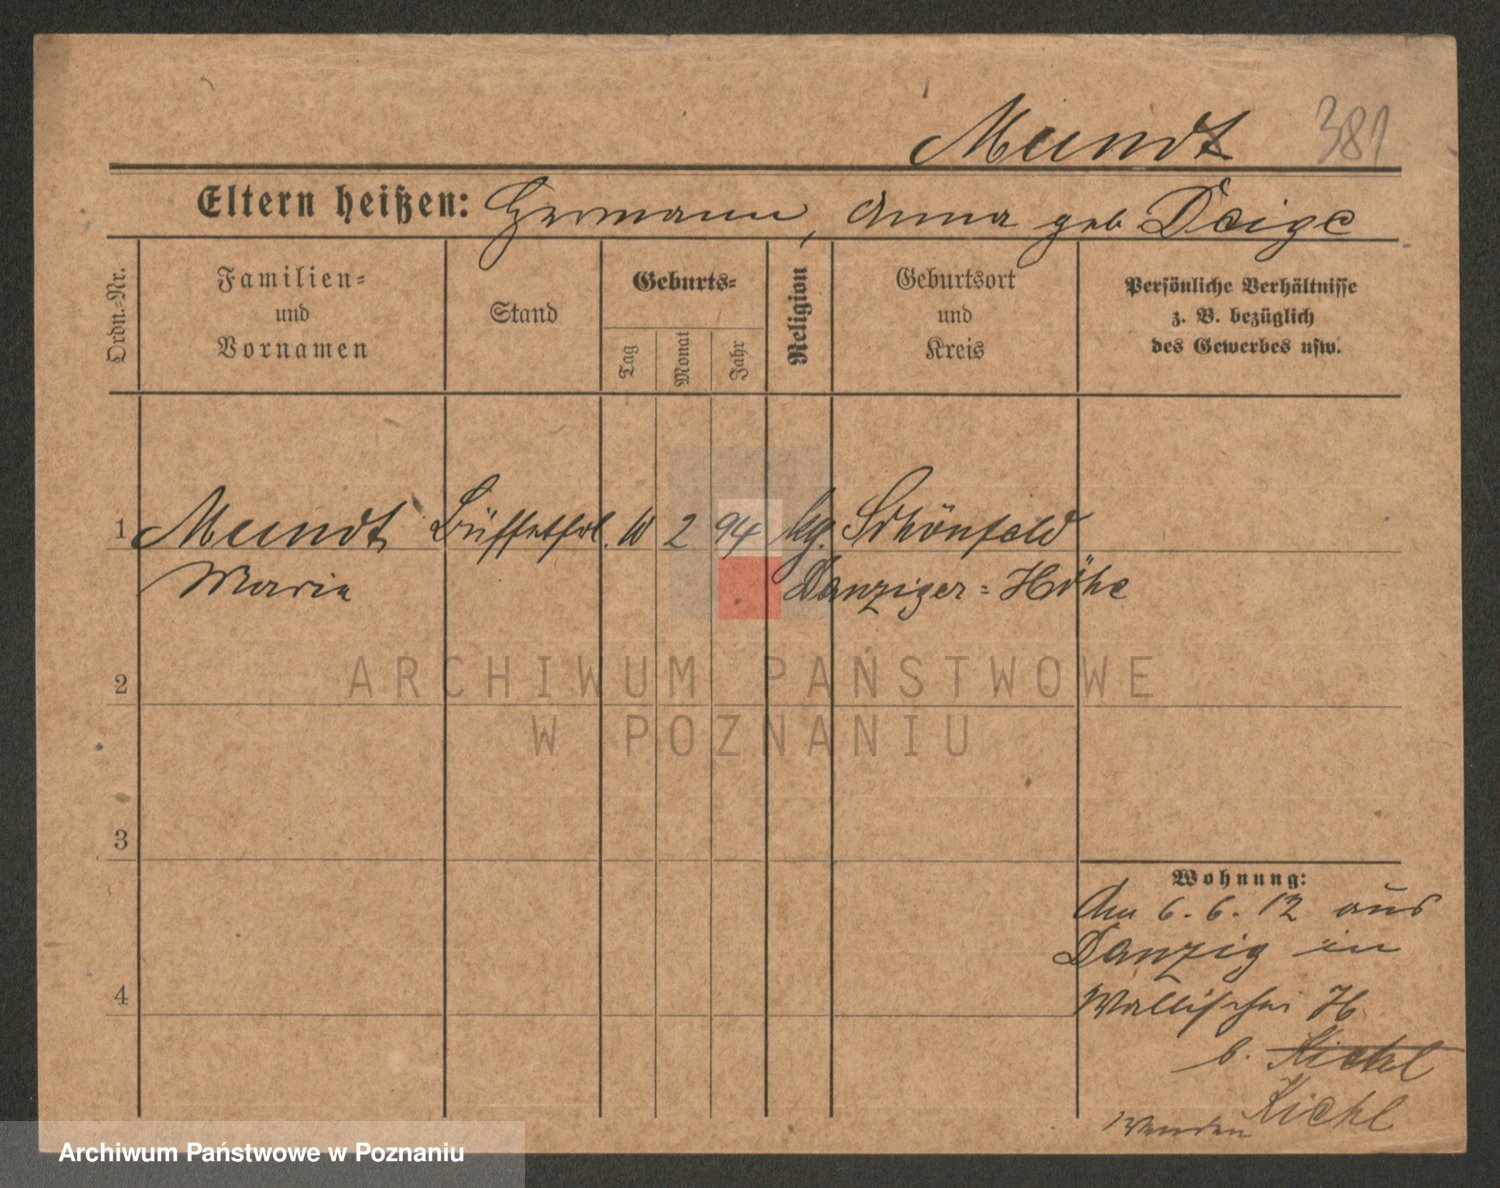 Mundt 381
Eltern heißen: Hermann, Anna geb Deige
Ordn.=Nr.
Familien=
und
Vornamen
Stand
Geburts=
Tag
Monat
Jahr
Religion
Geburtsort
und
Kreis
Persönliche Verhältnisse
z. B. bezüglich
des Gewerbes usw.
1 Mundt Büffetfrl. 10 2 94 kg. Schönfeld
Marie Danziger=Höhe
ARCHIWUM PAŃSTWOWE
W POZNANIU
2
3
4
Wohnung:
Am 6.6.12 aus
Danzig in
Wallischei
b. Kickl
Kickl
Wenden
Archiwum Państwowe w Poznaniu